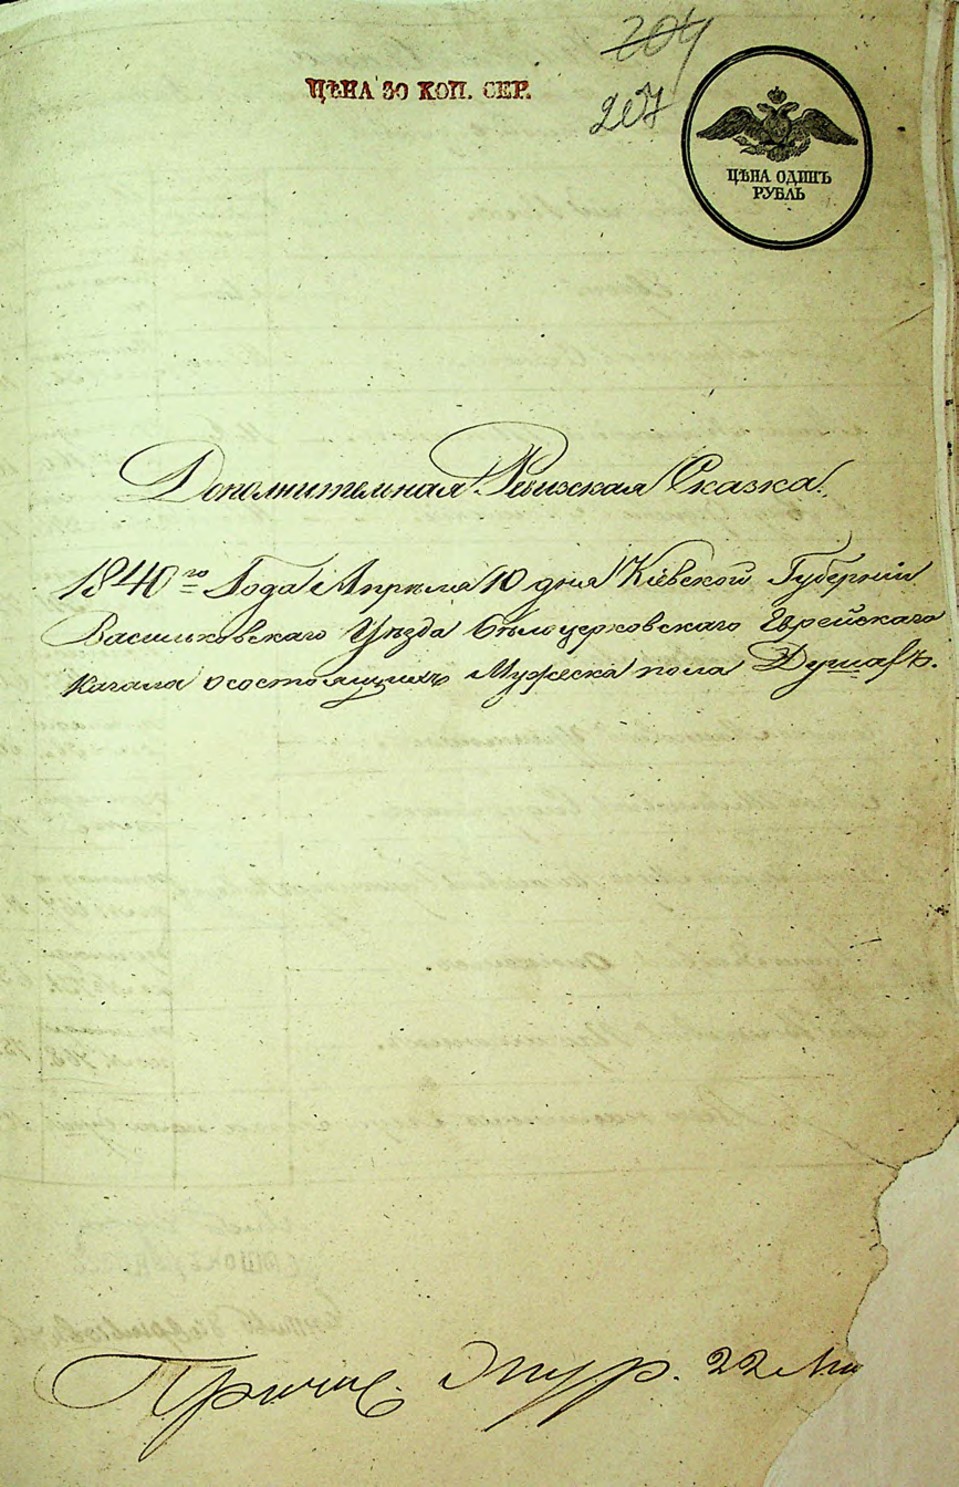 204
207
ЦѢНА 30 КОП. СЕР.
ЦѢНА ОДИНЪ
РУБЛЬ
Дополнительная Ревизская Сказка.
1840го Года Апрѣля 10 дня Кіевской Губерніи
Васильковскаго Уѣзда бѣлоцерковскаго Еврейскаго
Кагала о состоящихъ Мужеска пола Душахъ.
22